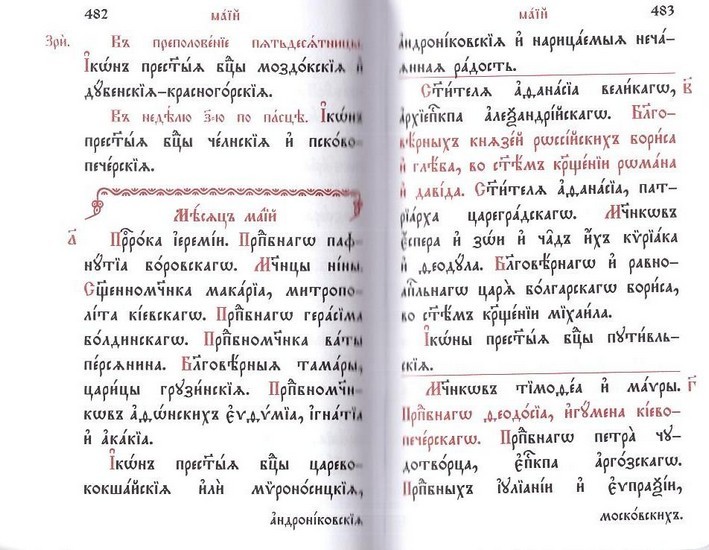 482 маі́й
Зрѝ. Въ преполове́нїе пѧтьдесѧ́тницы,
І҆кѡ́нъ прест҃ы́ѧ бцⷣы моздо́кскїѧ и҆
дꙋ́бенскїѧ-красного́рскїѧ.
Въ недѣ́лю з҃-ю по па́сцѣ. І҆кѡ́нъ
прест҃ы́ѧ бцⷣы че́лнскїѧ и҆ пско́во-
пече́рскїѧ.
Мѣ́сѧцъ маі́й
а҃ Прⷪ҇ро́ка і҆еремі́и. Прпⷣбнагѡ паф-
нꙋ́тїа бо́ровскагѡ. Мч҃нцы ні́ны.
Сщ҃енномч҃нка мака́рїа, митропо-
лі́та кі́евскагѡ. Прпⷣбнагѡ гера́сїма
бо́лдинскагѡ. Прпⷣбномч҃нка ва́ты
пе́рсѧнина. Бл҃говѣ́рныѧ тама́ры,
цари́цы грꙋзи́нскїѧ. Прпⷣбномч҃ни-
кѡвъ а҆ѳѡ́нскихъ є҆ѵѳѵ́мїа, і҆гна́тїа
и҆ а҆ка́кїа.
І҆кѡ́нъ прест҃ы́ѧ бцⷣы царево-
кокша́йскїѧ и҆лѝ мѵроно́сицкїѧ,
а҆ндроні́ковскїѧ
маі́й 483
а҆ндроні́ковскїѧ и҆ нарица́емыѧ неча́-
ѧннаѧ ра́дость.
Ст҃и́телѧ а҆ѳана́сїа вели́кагѡ, в҃
а҆рхїепⷭ҇кпа а҆леѯандрі́йскагѡ. Бл҃го-
вѣ́рныхъ кнѧзе́й рѡссі́йскихъ бори́са
и҆ глѣ́ба, во ст҃ѣ́мъ кр҃ще́нїи рѡма́на
и҆ даві́да. Ст҃и́телѧ а҆ѳана́сїа, пат-
рїа́рха цареѓра́дскагѡ. Мч҃нкѡвъ
є҆́спера и҆ зѡ́и и҆ ча̑дъ и҆́хъ кѷрїа́ка
и҆ ѳеодꙋ́ла. Бл҃говѣ́рнагѡ и҆ равно-
а҆пⷭ҇льнагѡ царѧ̀ болга́рскагѡ бори́са,
во ст҃ѣ́мъ кр҃ще́нїи мїхаи́ла.
І҆кѡ́ны прест҃ы́ѧ бцⷣы пꙋти́вль-
скїѧ.
Мч҃нкѡвъ тїмоѳе́а и҆ ма́ѵры. г҃
Прпⷣбнагѡ ѳеодо́сїа, и҆гꙋ́мена кі́ево-
пече́рскагѡ. Прпⷣбнагѡ петра̀ чꙋ-
дотво́рца, є҆пⷭ҇кпа а҆рго́зскагѡ.
Прпⷣбныхъ і҆ꙋлїані́и и҆ є҆ѵпраѯі́и,
моско́вскихъ.